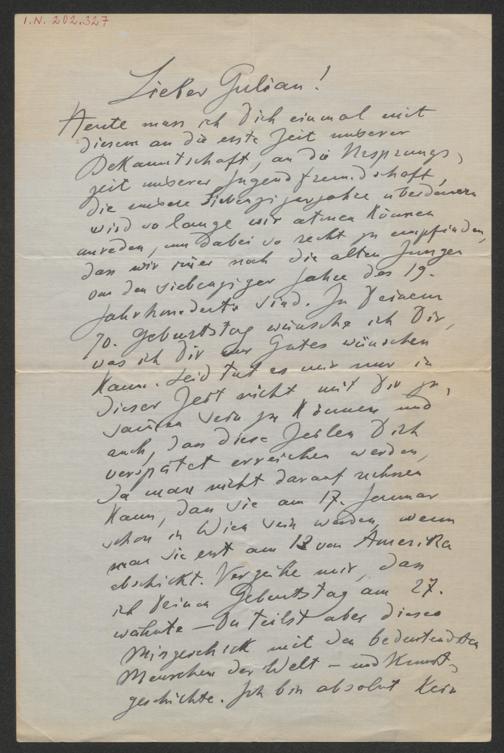 I.N. 202.327
Lieber Julian!
Heute muss ich Dich einmal mit
diesem an die erste Zeit unserer
Bekanntschaft, an die Ursprungs-
zeit unserer Jugendfreundschaft,
die unsere Siebenzigerjahre überdauern
wird so lange wir atmen können
anreden, um dabei so recht zu empfinden,
dass wir immer noch die alten Jungen
von den siebenziger Jahre des 19.
Jahrhunderts sind. Zu Deinem
70. Geburtstag wünsche ich Dir,
was ich Dir nur Gutes wünschen
kann. Leid tut es mir nur in
dieser Zeit nicht mit Dir zu-
samen sein zu können und
auch, dass diese Zeilen Dich
verspätet erreichen werden,
da man nicht darauf rechnen
kann, dass sie am 17. Jannuar
schon in Wien sein werden, wenn
man sie erst am 12 von Amerika
abschickt. Verzeihe mir, dass
ich Deinen Geburtstag am 27.
wähnte – Du teilst aber dieses
Missgeschick mit den bedeutendsten
Menschen der Welt – und Kunst-
geschichte. Ich bin absolut kein